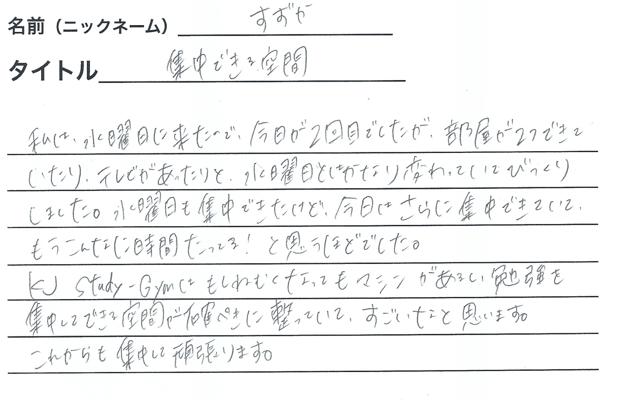 名前（ニックネーム） すずか
タイトル 集中できる空間
私は、水曜日に来たので、今日が2回目でしたが、部屋が2つできて
いたり、テレビがあったりと、水曜日とはかなり変わっていてびっくり
しました。水曜日も集中できたけど、今日はさらに集中できていて、
もうこんなに時間たってる！と思うほどでした。
KJ Study-Gymはもしねむくなってもマシンがあるし、勉強を
集中してできる空間が完ぺきに整っていて、すごいなと思います。
これからも集中して頑張ります。